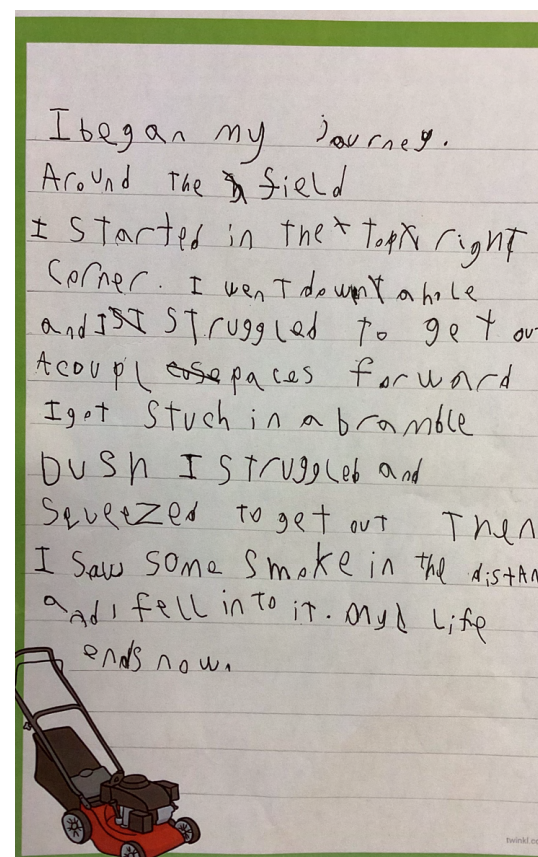 I began my journey.
Around the field
I started in the top right
corner. I went down a hole
and I struggled to get ou
A coupl paces forward
I got stuch in a bramble
bush I struggleb and
squeezed to get out Then
I saw some smoke in the distan
and i fell in to it. my life
ends now.
twinkl.co